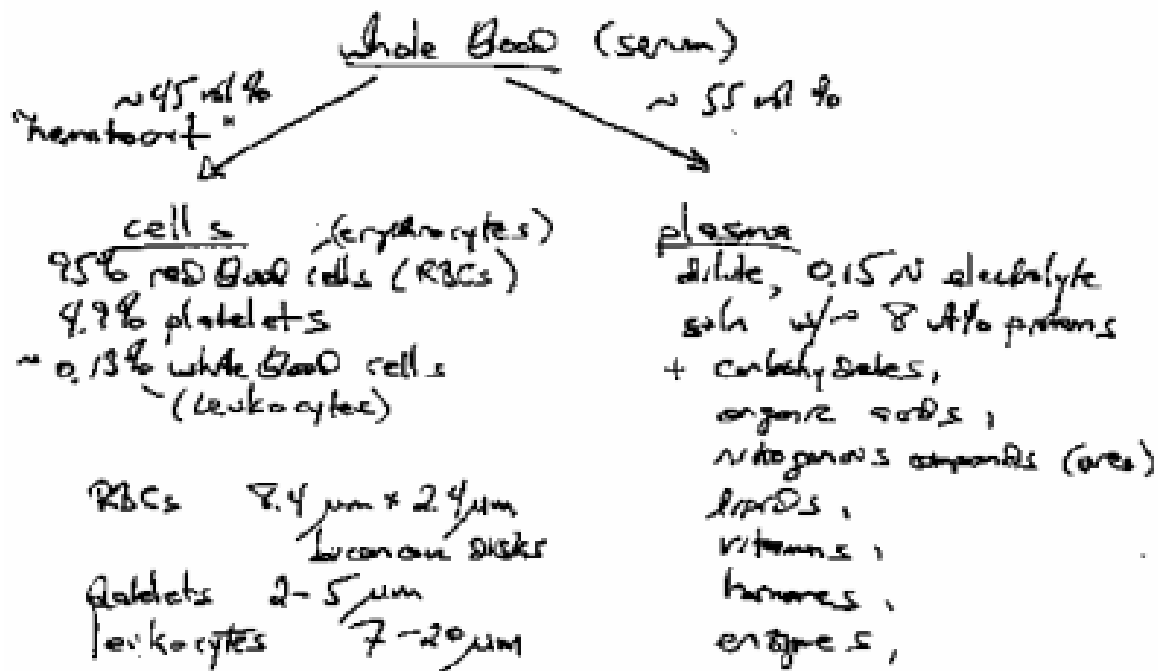 whole blood (serum)
~45 vol %
"hematocrit"
~ 55 vol %
cells (erythrocytes)
95% red blood cells (RBCs)
4.9% platelets
~ 0.13% white blood cells
(leukocytes)
RBCs 8.4 μm × 2.4 μm
biconcave disks
platelets 2-5 μm
leukocytes 7-20 μm
plasma
dilute, 0.15 N electrolyte
soln w/~ 8 wt% proteins
+ carbohydrates,
organic acids,
nitrogenous compounds (urea)
lipids,
vitamins,
hormones,
enzymes,